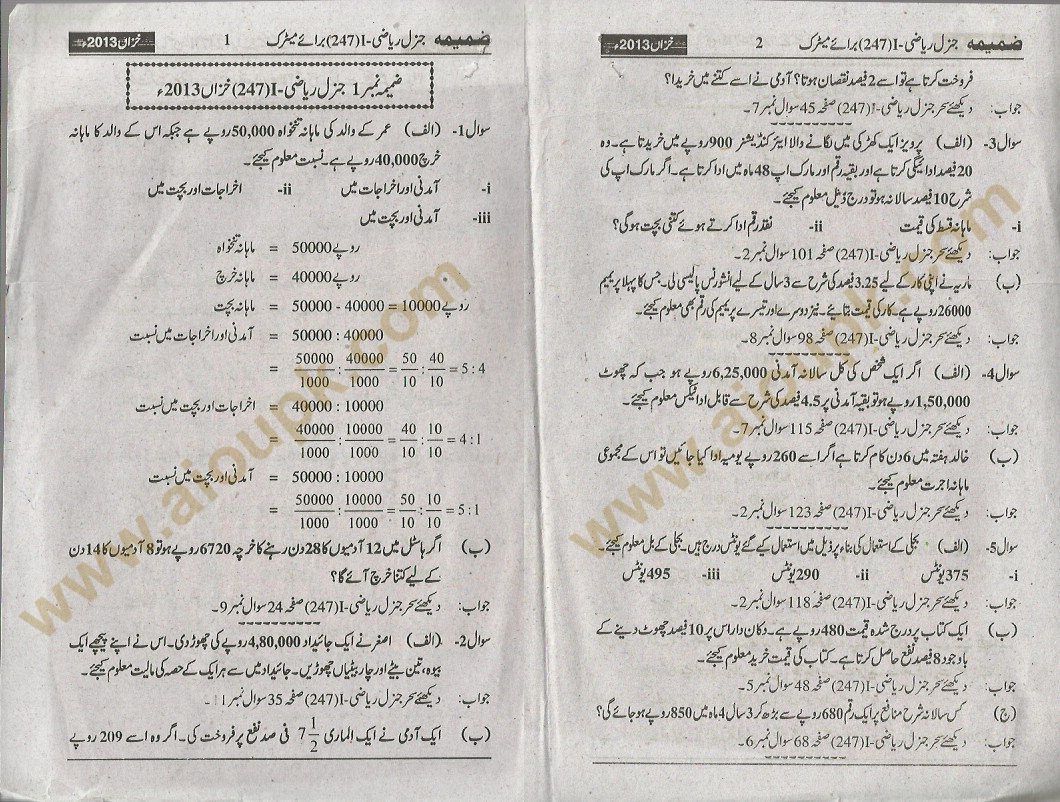 ضمیمہ جنرل ریاضی-I(247) برائے میٹرک 1 خزاں 2013ء
ضمیمہ نمبر 1 جنرل ریاضی-I(247) خزاں 2013ء
سوال 1- (الف) عمر کے والد کی ماہانہ تنخواہ 50,000 روپے ہے جبکہ اس کے والد کا ماہانہ
خرچ 40,000 روپے ہے۔ نسبت معلوم کیجئے۔
i- آمدنی اور اخراجات میں ii- اخراجات اور بچت میں
iii- آمدنی اور بچت میں
ماہانہ تنخواہ = 50000 روپے
ماہانہ خرچ = 40000 روپے
ماہانہ بچت = 50000 - 40000 = 10000 روپے
آمدنی اور اخراجات میں نسبت = 50000 : 40000
= 50000/1000 : 40000/1000 = 50/10 : 40/10 = 5 : 4
اخراجات اور بچت میں نسبت = 40000 : 10000
= 40000/1000 : 10000/1000 = 40/10 : 10/10 = 4:1
آمدنی اور بچت میں نسبت = 50000 : 10000
= 50000/1000 : 10000/1000 = 50/10 : 10/10 = 5:1
(ب) اگر ہاسٹل میں 12 آدمیوں کا 28 دن رہنے کا خرچہ 6720 روپے ہو تو 8 آدمیوں کا 14 دن
کے لیے کتنا خرچ آئے گا؟
جواب: دیکھئے سحر جنرل ریاضی-I(247) صفحہ 24 سوال نمبر 9۔
سوال 2- (الف) اصغر نے ایک جائیداد 4,80,000 روپے کی چھوڑدی۔ اس نے اپنے پیچھے ایک
بیوہ، تین بیٹے اور چار بیٹیاں چھوڑیں۔ جائیداد میں سے ہر ایک کے حصہ کی مالیت معلوم کیجئے۔
جواب: دیکھئے سحر جنرل ریاضی-I(247) صفحہ 35 سوال نمبر 11۔
(ب) ایک آدمی نے ایک الماری 7 1/2 فی صد نفع پر فروخت کی۔ اگر وہ اسے 209 روپے
ضمیمہ جنرل ریاضی-I(247) برائے میٹرک 2 خزاں 2013ء
فروخت کرتا ہے تو اسے 2 فیصد نقصان ہوتا؟ آدمی نے اسے کتنے میں خریدا؟
جواب: دیکھئے سحر جنرل ریاضی-I(247) صفحہ 45 سوال نمبر 7۔
سوال 3- (الف) پرویز ایک کھڑکی میں لگانے والا ایئر کنڈیشنر 900 روپے میں خریدتا ہے۔ وہ
20 فیصد ادائیگی کرتا ہے اور بقیہ رقم اور مارک اپ 48 ماہ میں ادا کرتا ہے۔ اگر مارک اپ کی
شرح 10 فیصد سالانہ ہو تو درج ذیل معلوم کیجئے۔
i- ماہانہ قسط کی قیمت ii- نقد رقم ادا کرتے ہوئے کتنی بچت ہوگی؟
جواب: دیکھئے سحر جنرل ریاضی-I(247) صفحہ 101 سوال نمبر 2۔
(ب) ماریہ نے اپنی کار کے لیے 3.25 فیصد کی شرح سے 3 سال کے لیے انشورنس پالیسی لی۔ جس کا پہلا پریمیم
26000 روپے ہے۔ کار کی قیمت بتائیے۔ نیز دوسرے اور تیسرے پریمیم کی رقم بھی معلوم کیجئے۔
جواب: دیکھئے سحر جنرل ریاضی-I(247) صفحہ 98 سوال نمبر 8۔
سوال 4- (الف) اگر ایک شخص کی کل سالانہ آمدنی 6,25,000 روپے ہو جب کہ چھوٹ
1,50,000 روپے ہو تو بقیہ آمدنی پر 4.5 فیصد کی شرح سے قابل ادا ٹیکس معلوم کیجئے۔
جواب: دیکھئے سحر جنرل ریاضی-I(247) صفحہ 115 سوال نمبر 7۔
(ب) خالد ہفتہ میں 6 دن کام کرتا ہے اگر اسے 260 روپے یومیہ ادا کیا جائیں تو اس کے مجموعی
ماہانہ اجرت معلوم کیجئے۔
جواب: دیکھئے سحر جنرل ریاضی-I(247) صفحہ 123 سوال نمبر 2۔
سوال 5- (الف) بجلی کے استعمال کی بناء پر ذیل میں استعمال کیے گئے یونٹس درج ہیں۔ بجلی کے بل معلوم کیجئے۔
i- 375 یونٹس ii- 290 یونٹس iii- 495 یونٹس
جواب: دیکھئے سحر جنرل ریاضی-I(247) صفحہ 118 سوال نمبر 2۔
(ب) ایک کتاب پر درج شدہ قیمت 480 روپے ہے۔ دکان دار اس پر 10 فیصد چھوٹ دینے کے
باوجود 8 فیصد نفع حاصل کرتا ہے۔ کتاب کی قیمت خرید معلوم کیجئے۔
جواب: دیکھئے سحر جنرل ریاضی-I(247) صفحہ 48 سوال نمبر 5۔
(ج) کس سالانہ شرح منافع پر ایک رقم 680 روپے سے بڑھ کر 3 سال 4 ماہ میں 850 روپے ہو جائے گی؟
جواب: دیکھئے سحر جنرل ریاضی-I(247) صفحہ 68 سوال نمبر 6۔
www.aioupk.com
www.aioupk.com